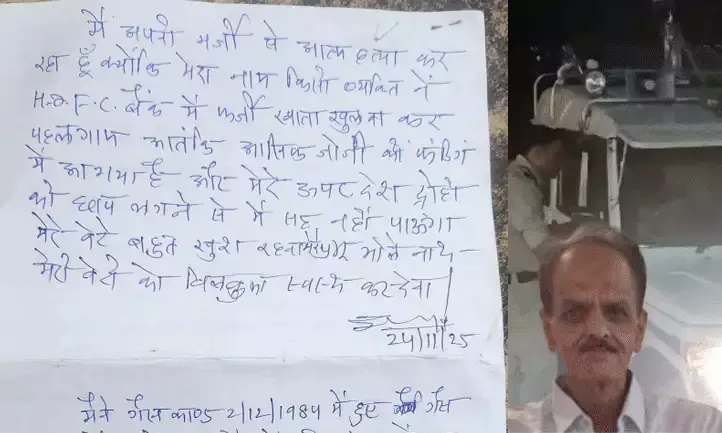 मैं अपनी मर्जी से आत्म हत्या कर
रहा हूँ क्योंकि मेरा नाम किसी व्यक्ति ने
H.D.F.C. बैंक में फर्जी खाता खुलवा कर
पहलगाम आतंकि आसिफ को फंडिंग
में आ गया है और मेरे ऊपर देश द्रोही
की छाप लगने से में सह नहीं पाऊंगा
मेरे बेटे बहुत खुश रहना भोले नाथ
मेरी बेटी को बिलकुल स्वास्थ कर देना
24/11/25
मैंने गैस काण्ड 2/12/1984 में हुए गैस